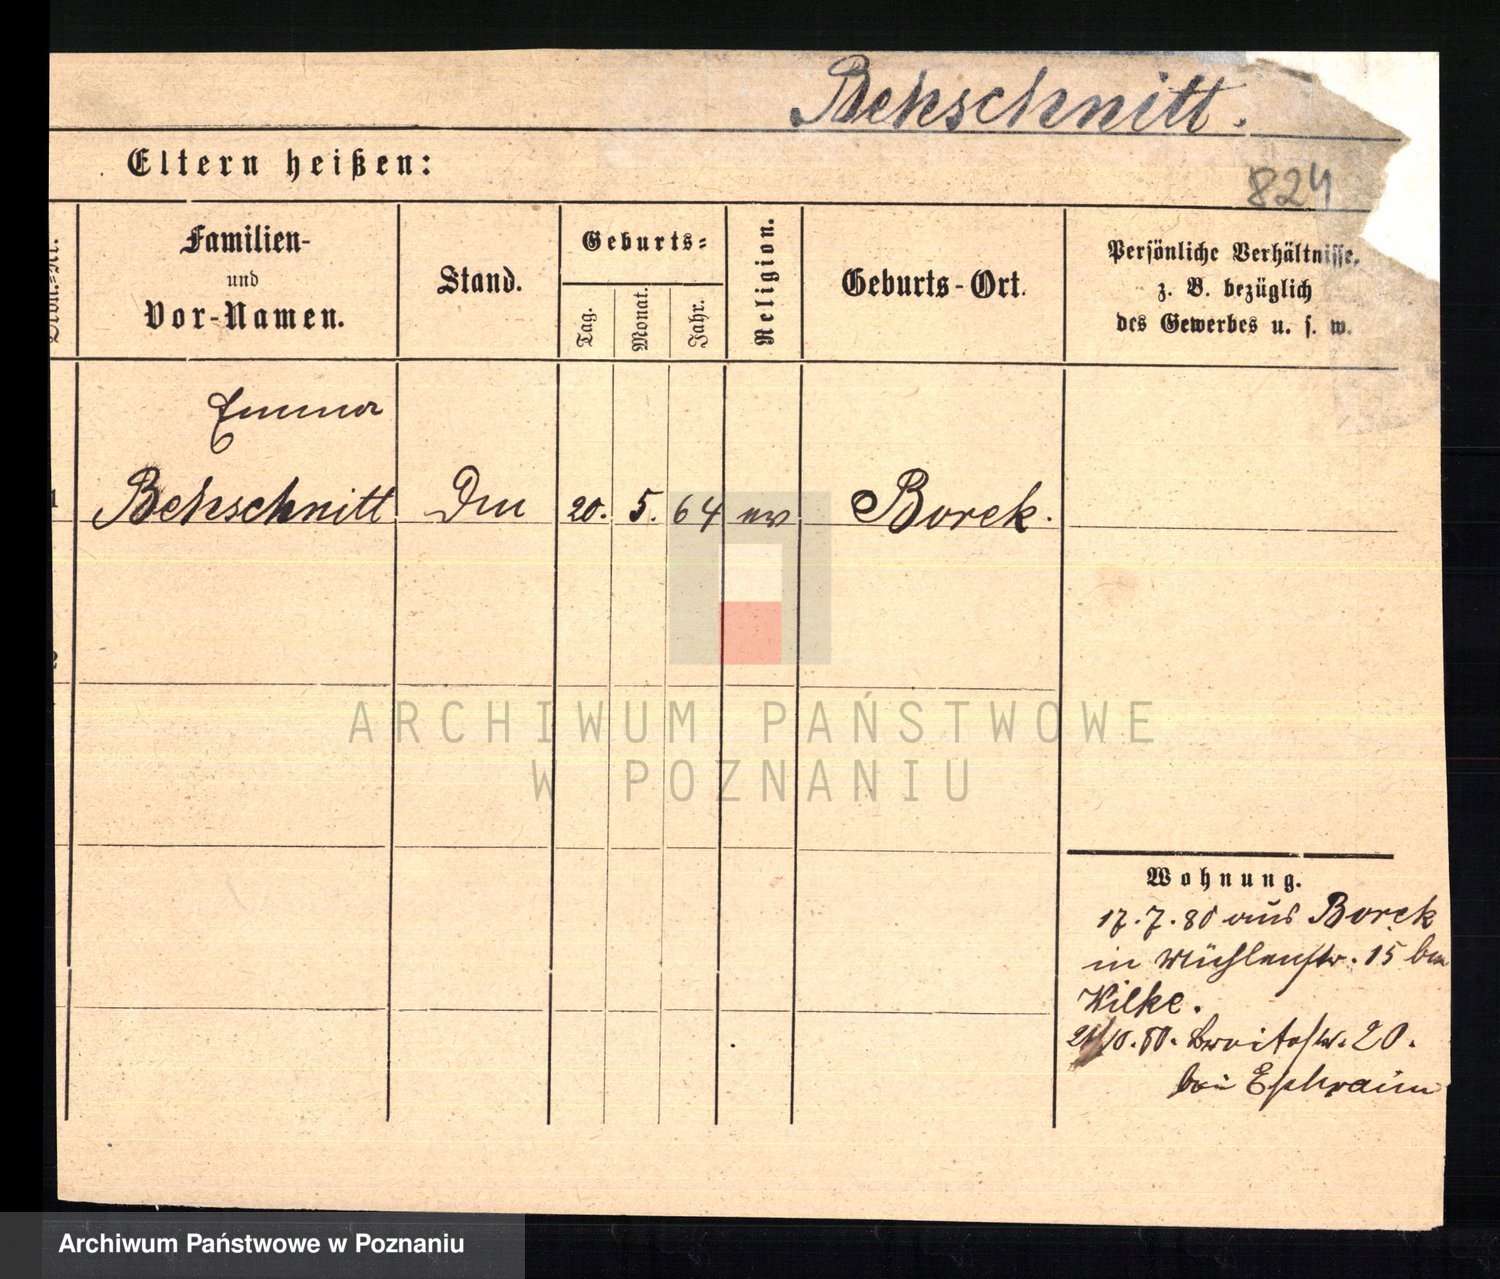 Bekschnitt.
Eltern heißen:
824
Familien-
und
Vor-Namen.
Stand.
Geburts-
Tag.
Monat.
Jahr.
Religion.
Geburts-Ort.
Persönliche Verhältnisse,
z. B. bezüglich
des Gewerbes u. s. w.
Emma
Bekschnitt
20. 5. 64 ev Borek.
Wohnung.
17.7.80 aus Borek
in Mühlenstr. 15 bei
Wilke.
10.80. Breitestr. 20.
bei Ephraim
ARCHIWUM PAŃSTWOWE
W POZNANIU
Archiwum Państwowe w Poznaniu